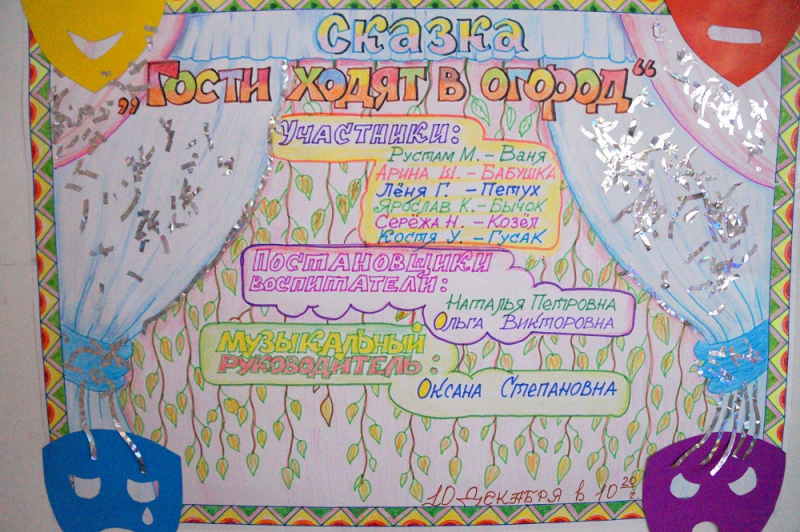 Сказка
„Гости ходят в огород“
Участники:
Рустам М. – Ваня
Арина Ш. – Бабушка
Лёня Г. – Петух
Ярослав К. – Бычок
Серёжа Н. – Козёл
Костя У. – Гусак
Постановщики
воспитатели:
Наталья Петровна
Ольга Викторовна
Музыкальный
руководитель:
Оксана Степановна
10 декабря в 10 20